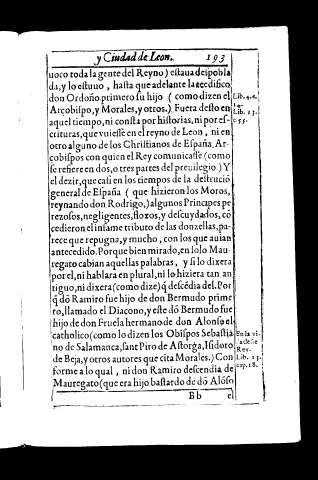 y Ciudad de Leon. 193
uoco toda la gente del Reyno) estaua despobla
da, y lo estuuo, hasta que adelante la reedifico
don Ordoño primero su hijo ( como dizen el
Arçobispo, y Morales, y otros.) Fuera desto en
aquel tiempo, ni consta por historias, ni por es-
crituras, que vuiesse en el reyno de Leon, ni en
otro alguno de los Christianos de España, Ar-
çobispos con quien el Rey comunicasse (como
se refiere en dos, o tres partes del preuilegio.) Y
el dezir, que casi en los tiempos de la destruciõ
general de España ( que hizieron los Moros,
reynando don Rodrigo,) algunos Principes pe
rezosos, negligentes, floxos, y descuydados, cõ
cedieron el infame tributo de las donzellas, pa-
rece que repugna, y mucho, con los que auian
antecedido. Porque bien mirado, en solo Mau-
regato cabian aquellas palabras, y si lo dixera
por el, ni hablara en plural, ni lo hiziera tan an
tiguo, ni dixera (como dize) q̃ descẽdia del. Por
q̃ dõ Ramiro fue hijo de don Bermudo prime
ro, llamado el Diacono, y este dõ Bermudo fue
hijo de don Fruela hermano de don Alonso el
catholico (como lo dizen los Obispos Sebastia
no de Salamanca, sant Piro de Astorga, Isidoro
de Beja, y otros autores que cita Morales.) Con
forme a lo qual, ni don Ramiro descendia de
Mauregato (que era hijo bastardo de dõ Alõso
Bb el
Lib. 4. c.
Lib. 13.
c. 55.
En la vi
da deste
Rey.
Lib. 13.
cap. 18.